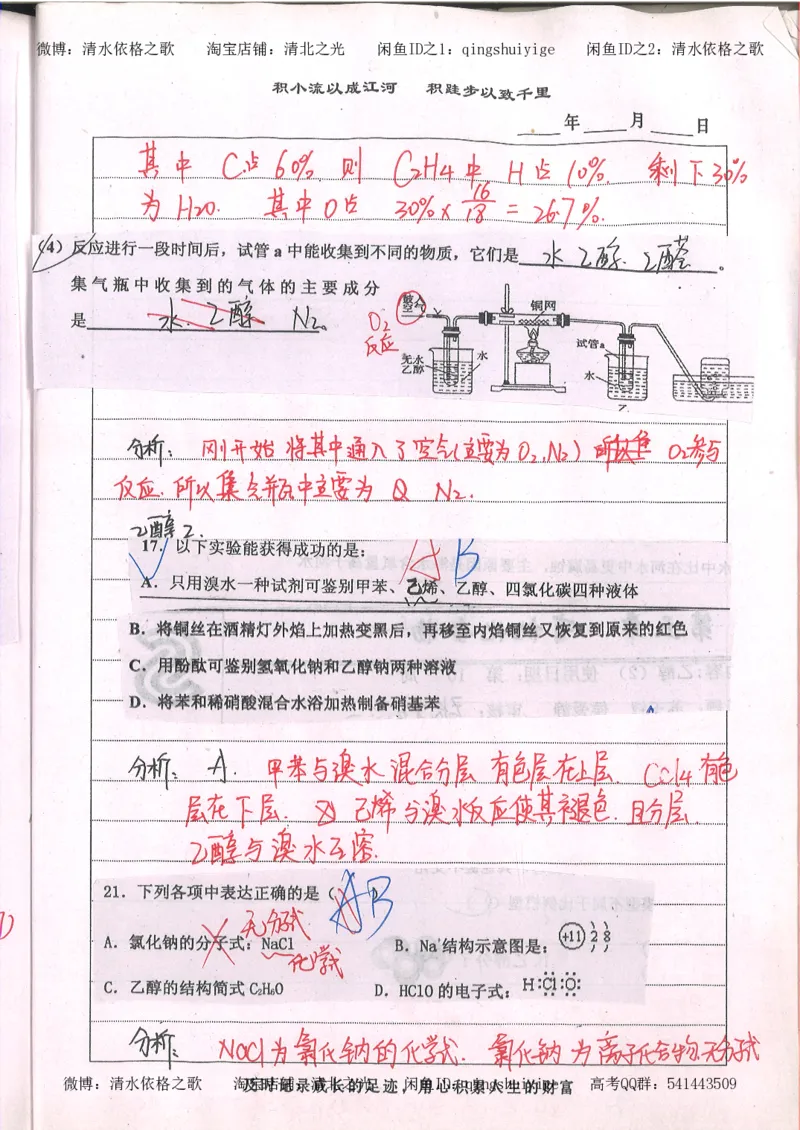 微博：清水依格之歌 淘宝店铺：清北之光 闲鱼ID之1：qingshuiyige 闲鱼ID之2：清水依格之歌
积小流以成江河 积跬步以致千里
年 月 日
其中 C占 60%, 则 C2H4中 H占 10%. 剩下30%
为 H2O. 其中O占 30% × 16/18 = 26.7%.
（4）反应进行一段时间后，试管 a 中能收集到不同的物质，它们是 水 乙醇. 乙醛 。
集气瓶中收集到的气体的主要成分
是 水. 乙醇 N2。
鼓入空气
铜网
O2
反应
试管a
无水乙醇
水
水
乙
分析: 刚开始 将其中通入了空气(主要为O2.N2) 所以集 O2参与
反应. 所以集气瓶中主要为 N2.
乙醇 2.
17．以下实验能获得成功的是： A B
A．只用溴水一种试剂可鉴别甲苯、己烯、乙醇、四氯化碳四种液体
B．将铜丝在酒精灯外焰上加热变黑后，再移至内焰铜丝又恢复到原来的红色
C．用酚酞可鉴别氢氧化钠和乙醇钠两种溶液
D．将苯和稀硝酸混合水浴加热制备硝基苯
分析: A. 甲苯与溴水 混合分层 有色层在上层. CCl4有色
层在下层. 己烯与溴水反应使其褪色. 且分层.
乙醇与溴水互溶.
21．下列各项中表达正确的是（ A B
无分子式
A．氯化钠的分子式：NaCl B．Na+结构示意图是： +11 2 8
化学式
C．乙醇的结构简式 C2H6O D．HClO 的电子式： H:Cl:O:
分析: NaCl为氯化钠的化学式. 氯化钠为离子化合物.无分子式
微博：清水依格之歌 淘宝店铺：清北之光 闲鱼ID：qingshuiyige 高考QQ群：541443509
及时记录成长的足迹，用心积累人生的财富